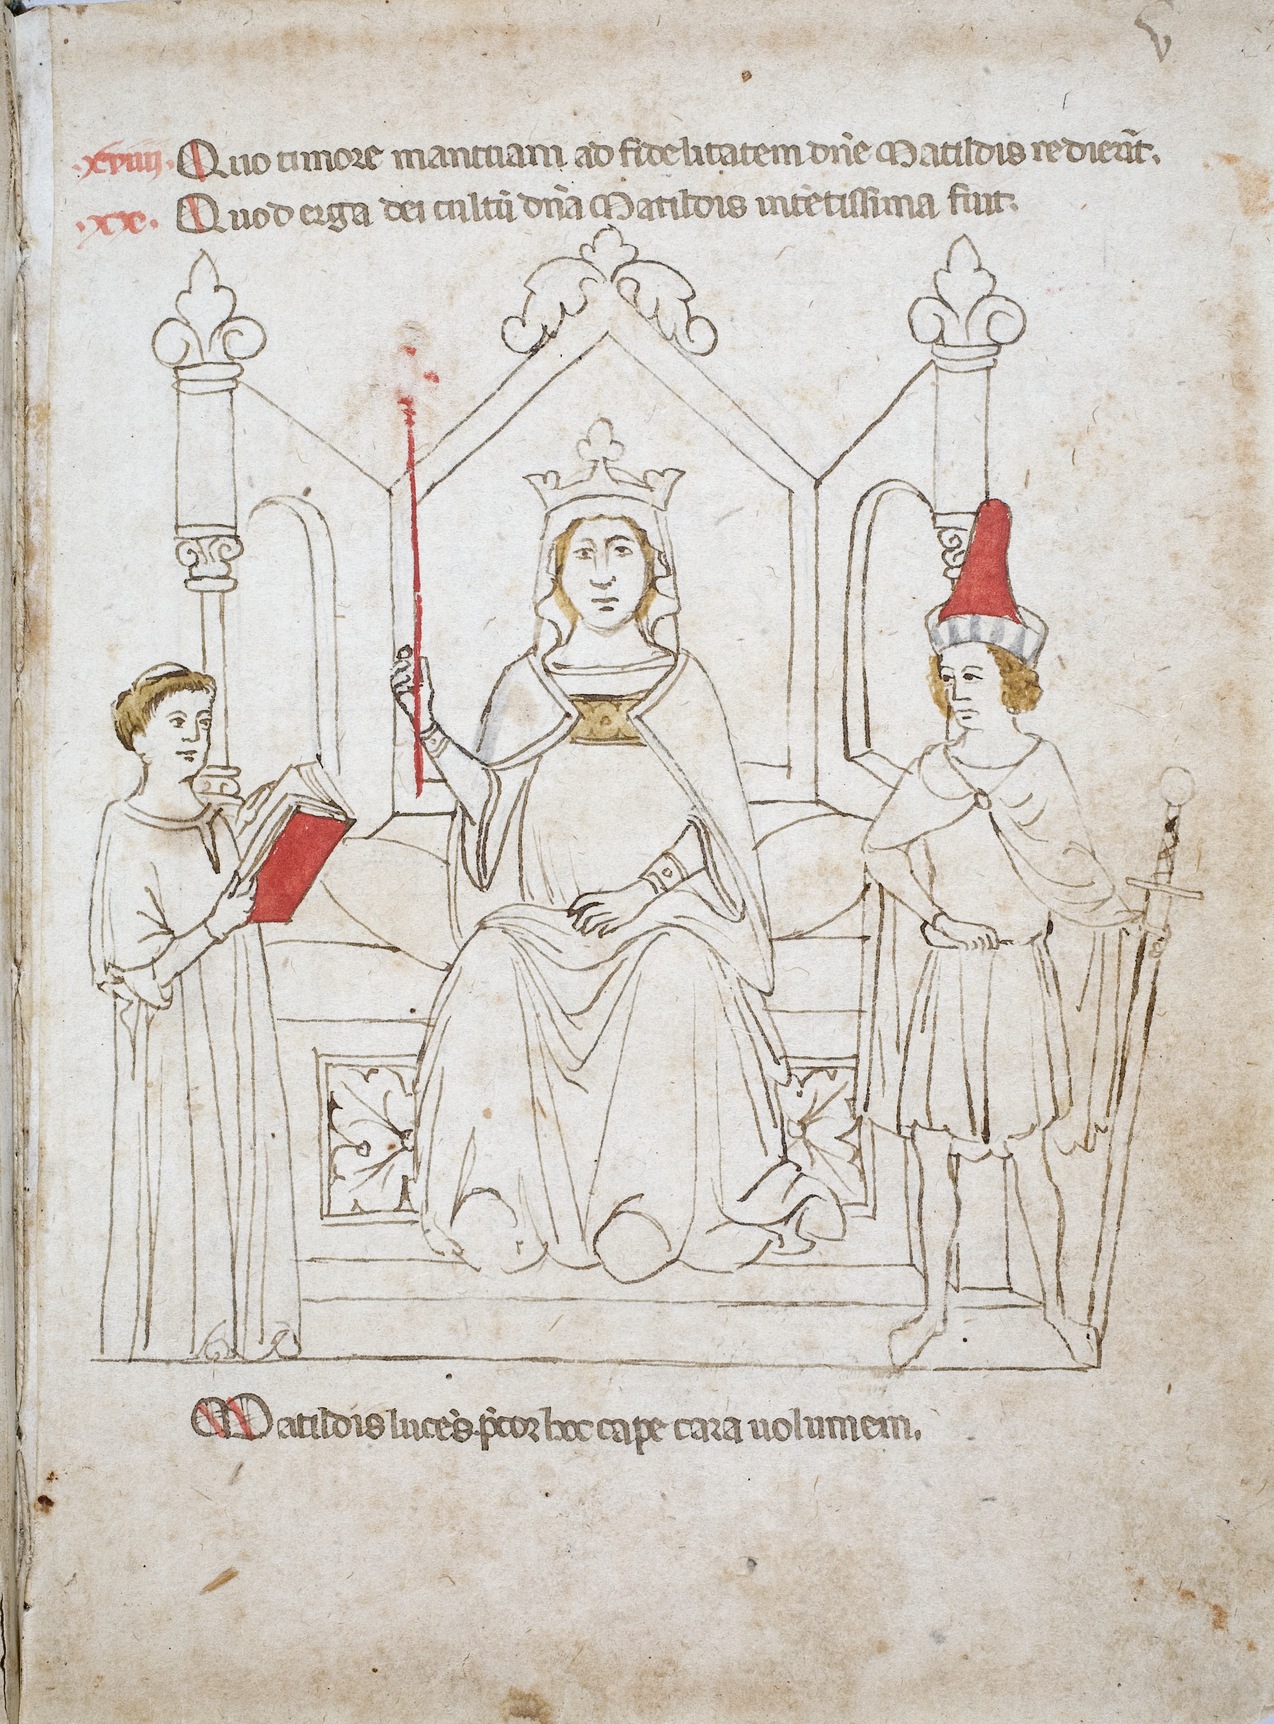 v
.xviiii. Quo timore mantuani ad fidelitatem dn̄e Matildis redier̄t.
.xx. Quod erga dei cultū dn̄a Matildis intētissima fuit.
Matildis lucēs p̄cor hoc cape cara uolumem.